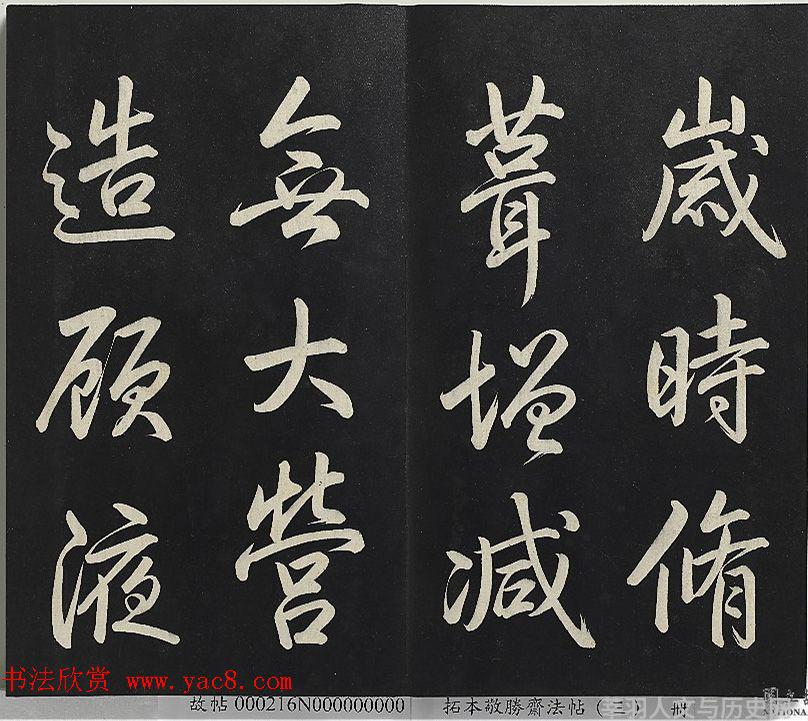 歲時脩
葺增減
無大營
造顧液
书法欣赏 www.yac8.com
故帖 000216N000000000
拓本敬勝齋法帖（三） 冊